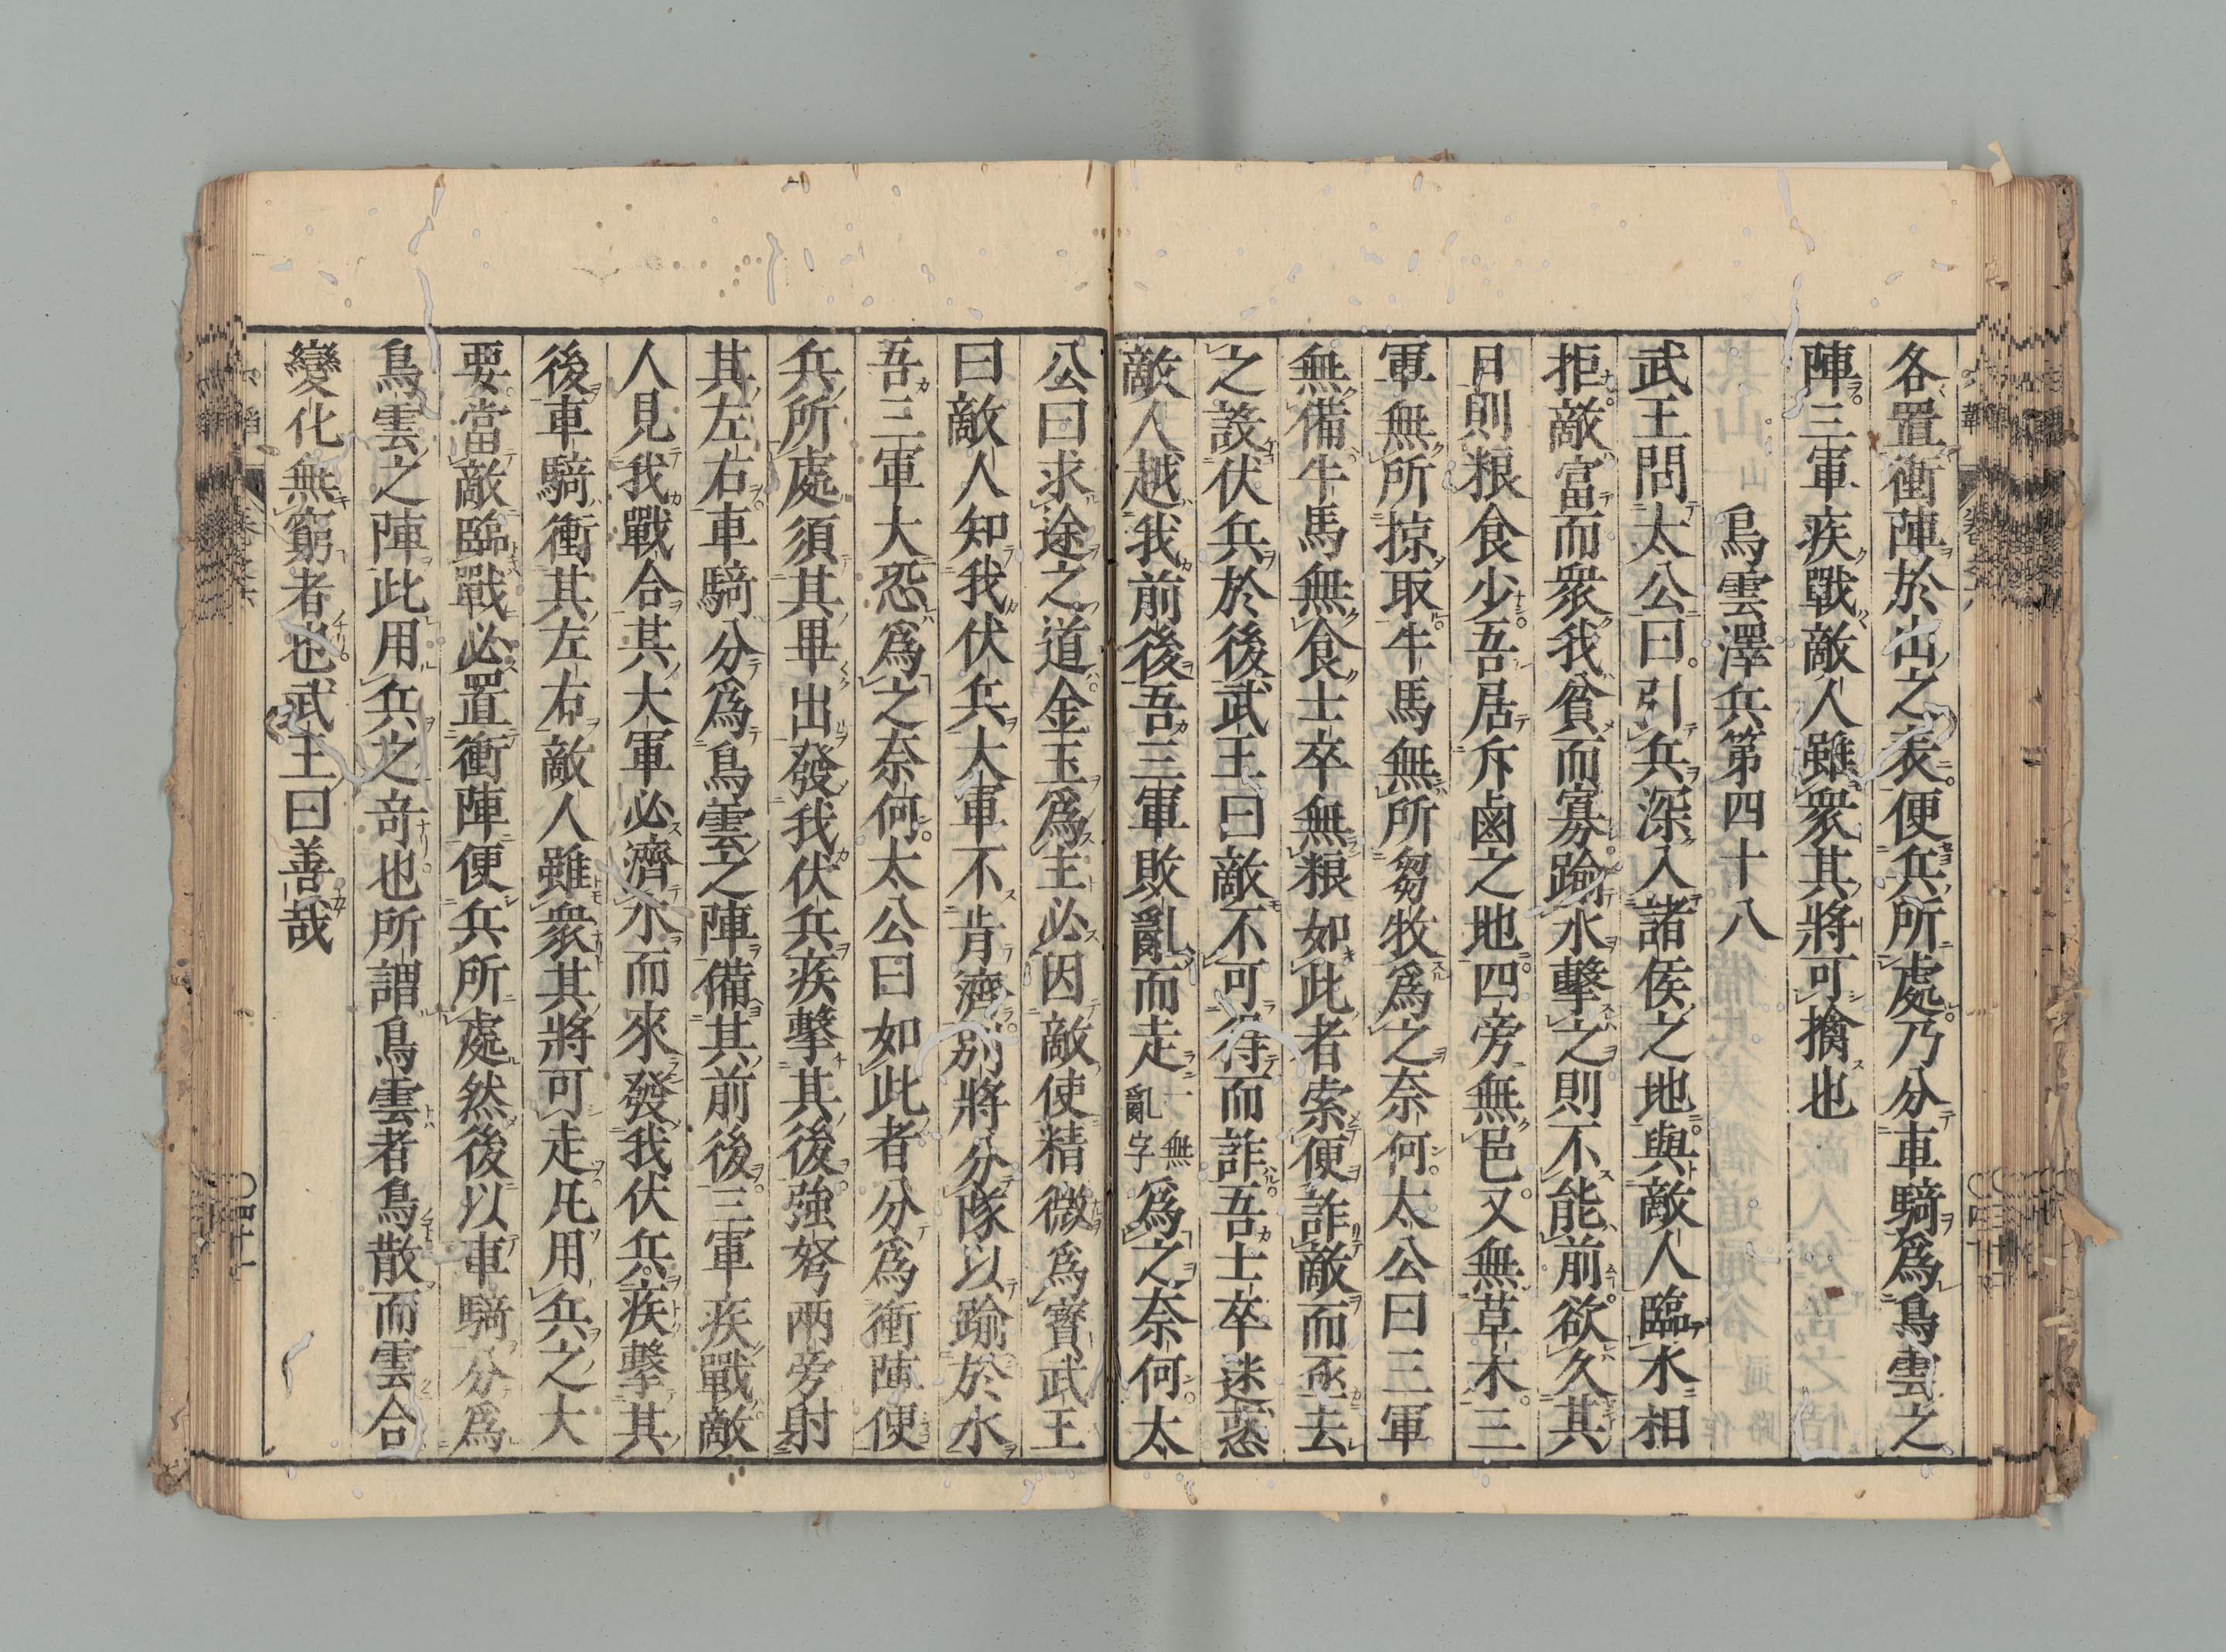 各置衝陣於山之表便兵所處乃分車騎爲鳥雲之
陣三軍疾戰敵人雖衆其將可擒也
鳥雲澤兵第四十八
武王問太公曰引兵深入諸侯之地與敵人臨水相
拒敵富而衆我貧而寡踰水擊之則不能前欲久其
日則粮食少吾居斥鹵之地四旁無邑又無草木三
軍無所掠取牛馬無所芻牧爲之奈何太公曰三軍
無備牛馬無食士卒無粮如此者索便詐敵而亟去
之設伏兵於後武王曰敵不可得而詐吾士卒迷惑
敵人越我前後吾三軍敗亂而走一無亂字爲之奈何太
公曰求途之道金玉爲主必因敵使精微爲寳武王
曰敵人知我伏兵大軍不肯濟別將分隊以踰於水
吾三軍大恐爲之奈何太公曰如此者分爲衝陣便
兵所處須其畢出發我伏兵疾擊其後強弩兩旁射
其左右車騎分爲鳥雲之陣備其前後三軍疾戰敵
人見我戰合其大軍必濟水而來發我伏兵疾擊其
後車騎衝其左右敵人雖衆其將可走凡用兵之大
要當敵臨戰必置衝陣便兵所處然後以車騎分爲
鳥雲之陣此用兵之竒也所謂鳥雲者鳥散而雲合
變化無窮者也武王曰善哉